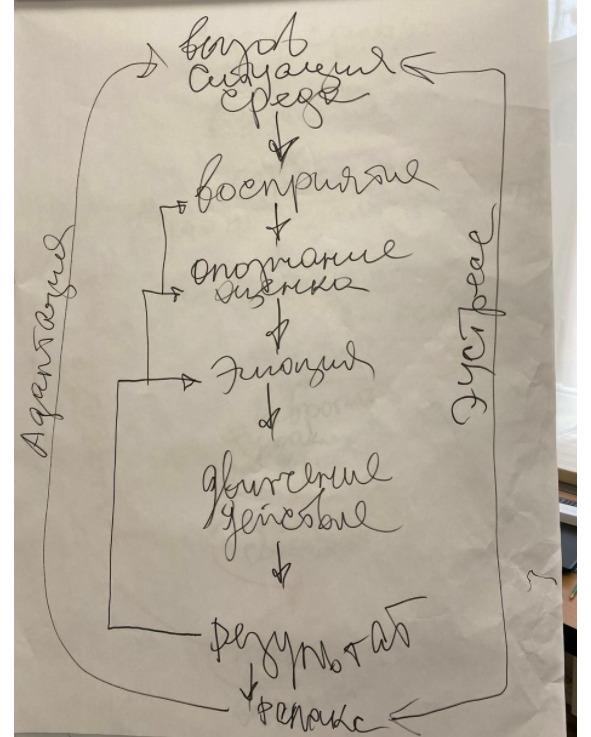 вызов
ситуация
среда
восприятие
опознание
оценка
эмоция
движение
действие
результат
релакс
Адаптация
Эустресс